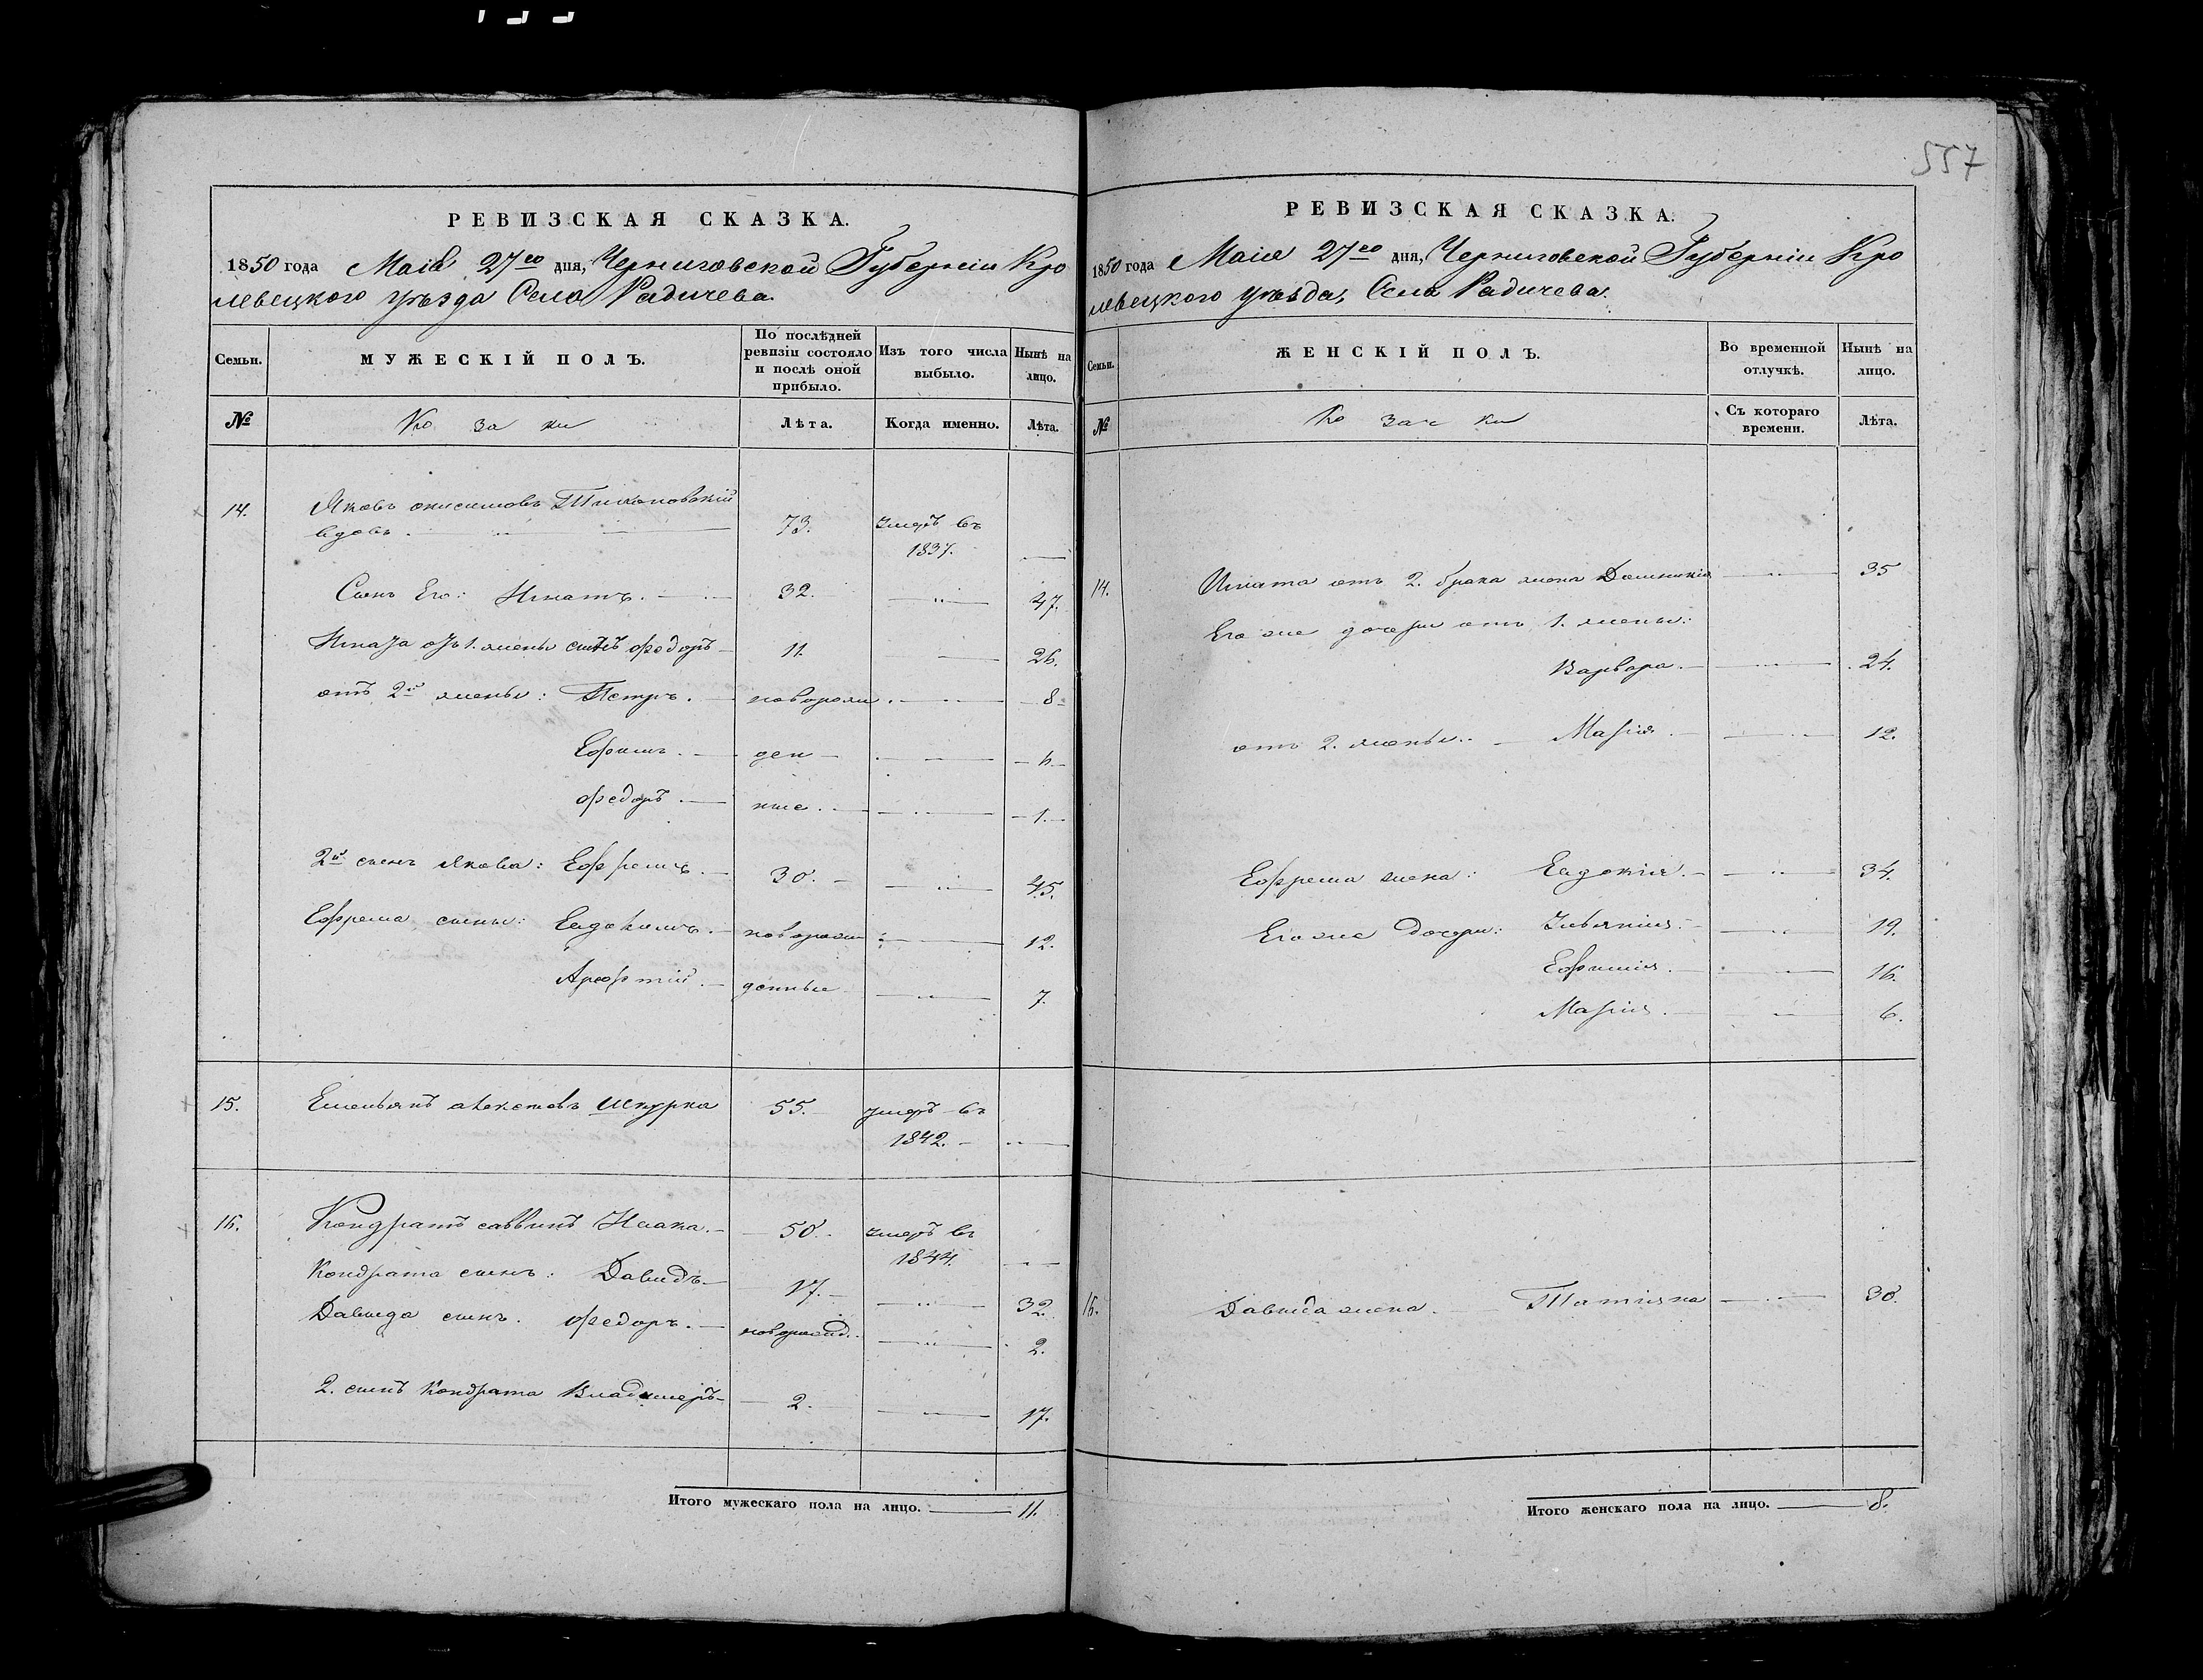 557
РЕВИЗСКАЯ СКАЗКА.
1850 года Маія 27го дня, Черниговской Губерніи Кро
левецкого уѣзда Села Радичева.
Семьи.
МУЖЕСКІЙ ПОЛЪ.
По послѣдней
ревизіи состояло
и послѣ оной
прибыло.
Изъ того числа
выбыло.
Нынѣ на
лицо.
№
Козаки
Лѣта.
Когда именно.
Лѣта.
14. Яковъ онисимовъ
вдовъ. 73. умеръ въ
1837.
Сынъ Его: Игнатъ. 32. 47.
Игната отъ 1. жены сынъ Федоръ 11. 26.
отъ 2й жены: Петръ. новорож 8
Ефимъ. ден 6
Федоръ. ные. 1.
2й сынъ Якова: Ефремъ. 30. 45.
Ефрема сыны: Евдокимъ. новорож 12.
денные 7.
15. Емельянъ Шкурка 55. умеръ въ
1842.
16. Кондратъ саввинъ 50. умеръ въ
1844.
Кондрата сынъ: Давидъ 17. 32.
Давида сынъ. Федоръ. новорожд. 2.
2. сынъ Кондрата Владимеръ 2. 17.
Итого мужескаго пола на лицо. 11.
РЕВИЗСКАЯ СКАЗКА.
1850 года Маія 27го дня, Черниговской Губерніи Кро
левецкого уѣзда, Села Радичева.
Семьи.
ЖЕНСКІЙ ПОЛЪ.
Во временной
отлучкѣ.
Нынѣ на
лицо.
№
Козачки
Съ котораго
времени.
Лѣта.
14. Игната отъ 2. брака жена 35
Его же дочери отъ 1. жены:
Варвара. 24.
отъ 2. жены: Марія. 12.
Ефрема жена: Евдокія. 34.
Его же дочери: Ульянія. 19.
Ефимія. 16.
Марія. 6.
16. Давида жена. Татіяна 30.
Итого женскаго пола на лицо. 8.